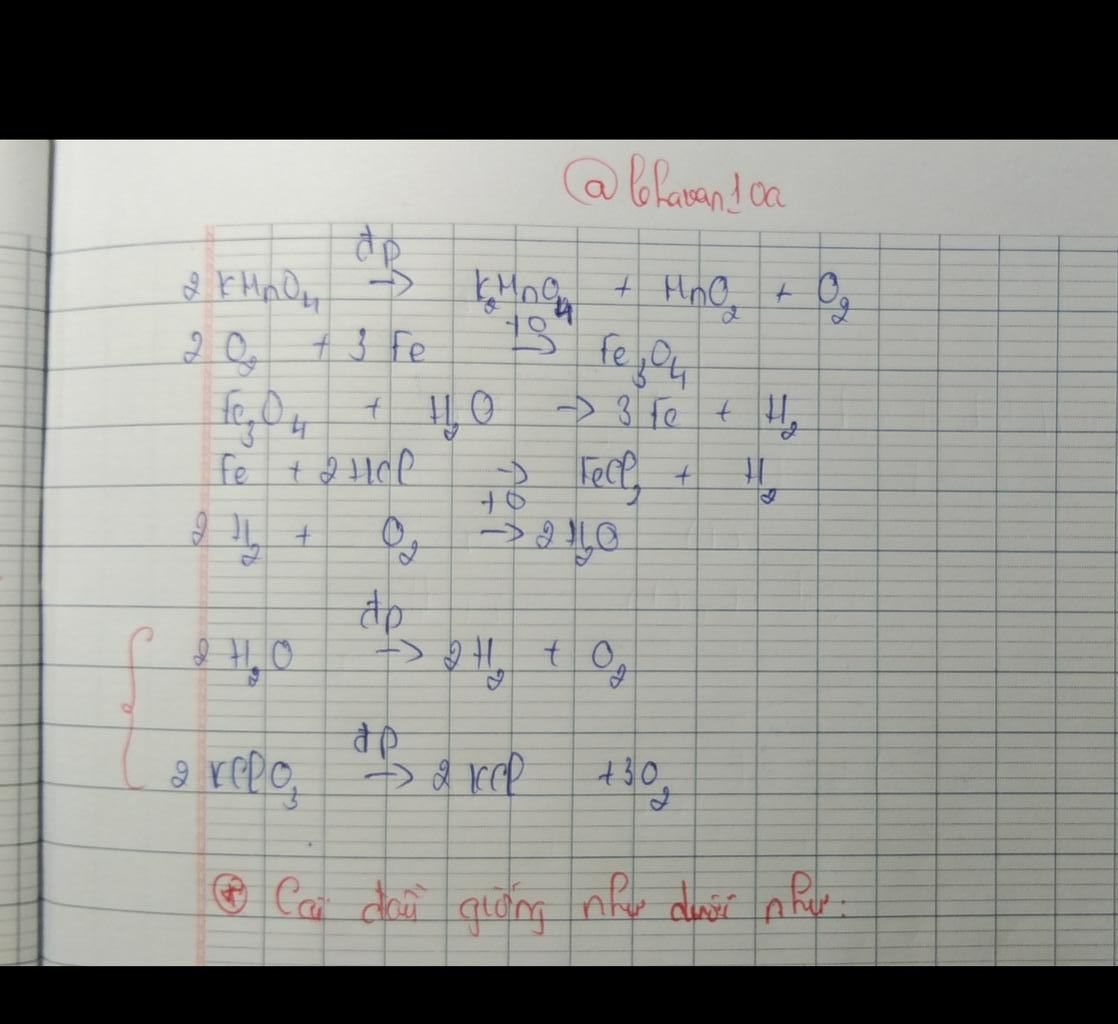 @lohavan_10a
đp
2 KMnO₄ → K₂MnO₄ + MnO₂ + O₂
t°
2 O₂ + 3 Fe → Fe₃O₄
Fe₃O₄ + H₂O → 3 Fe + H₂
Fe + 2 HCl → FeCl₂ + H₂
t°
2 H₂ + O₂ → 2 H₂O
đp
2 H₂O → 2 H₂ + O₂
đp
2 KClO₃ → 2 KCl + 3O₂
Cái đầu giống như dưới như: